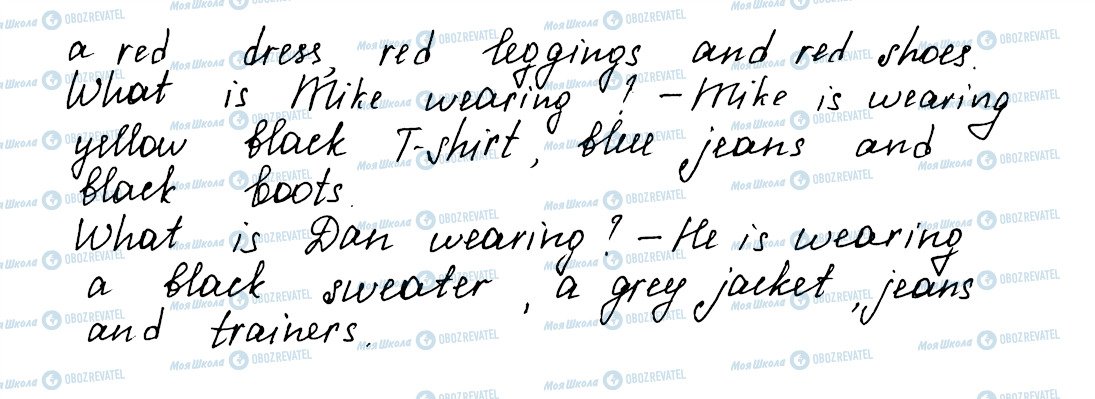 a red dress, red leggings and red shoes.
What is Mike wearing? – Mike is wearing
yellow black T-shirt, blue jeans and
black boots.
What is Dan wearing? – He is wearing
a black sweater, a grey jacket, jeans
and trainers.
МояШкола OBOZREVATEL